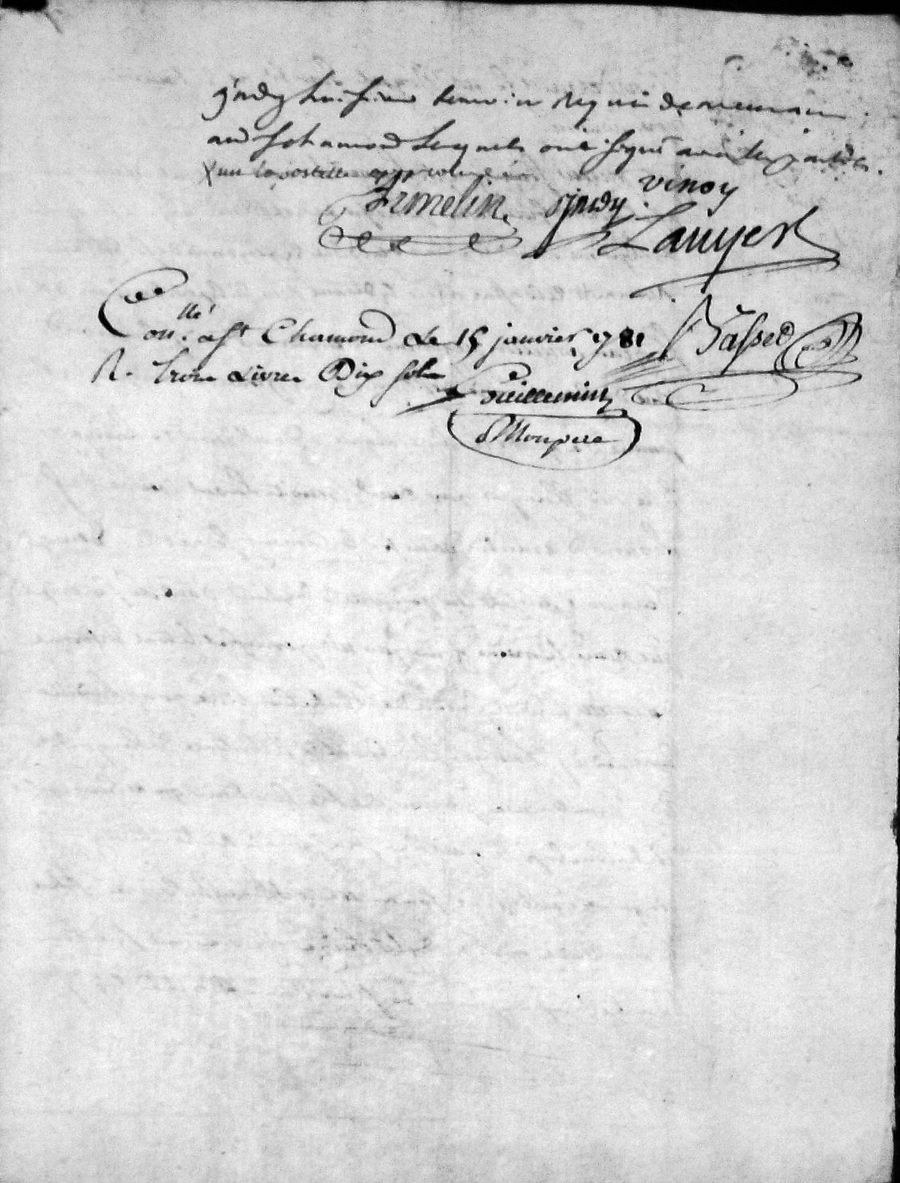 jandy huissier temoin requis demeurant
aud st chamond lesquels ont signé avec les parties
une apostille approuvée
frmelin. ojandy. vinoy
Lauyer
Conllé a St Chamond Le 15 janvier 1781 Basset
R. trois Livres Dix sols
Guillemin